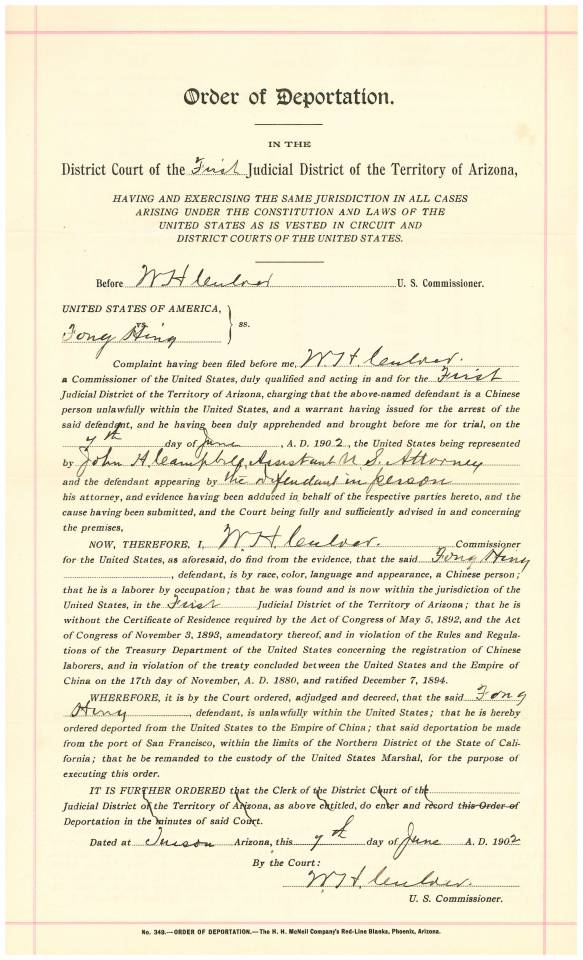 Order of Deportation.
IN THE
District Court of the First Judicial District of the Territory of Arizona,
HAVING AND EXERCISING THE SAME JURISDICTION IN ALL CASES
ARISING UNDER THE CONSTITUTION AND LAWS OF THE
UNITED STATES AS IS VESTED IN CIRCUIT AND
DISTRICT COURTS OF THE UNITED STATES.
Before W H Culver U. S. Commissioner.
UNITED STATES OF AMERICA,
vs
Fong Hing
ss.
Complaint having been filed before me, W. H. Culver.
a Commissioner of the United States, duly qualified and acting in and for the First
Judicial District of the Territory of Arizona, charging that the above-named defendant is a Chinese
person unlawfully within the United States, and a warrant having issued for the arrest of the
said defendant, and he having been duly apprehended and brought before me for trial, on the
7th day of June, A. D. 1902, the United States being represented
by John H. Campbell, Assistant U. S. Attorney
and the defendant appearing by the defendant in person
his attorney, and evidence having been adduced in behalf of the respective parties hereto, and the
cause having been submitted, and the Court being fully and sufficiently advised in and concerning
the premises,
NOW, THEREFORE, I, W. H. Culver. Commissioner
for the United States, as aforesaid, do find from the evidence, that the said Fong Hing
, defendant, is by race, color, language and appearance, a Chinese person;
that he is a laborer by occupation; that he was found and is now within the jurisdiction of the
United States, in the First Judicial District of the Territory of Arizona; that he is
without the Certificate of Residence required by the Act of Congress of May 5, 1892, and the Act
of Congress of November 3, 1893, amendatory thereof, and in violation of the Rules and Regula-
tions of the Treasury Department of the United States concerning the registration of Chinese
laborers, and in violation of the treaty concluded between the United States and the Empire of
China on the 17th day of November, A. D. 1880, and ratified December 7, 1894.
WHEREFORE, it is by the Court ordered, adjudged and decreed, that the said Fong
Hing, defendant, is unlawfully within the United States; that he is hereby
ordered deported from the United States to the Empire of China; that said deportation be made
from the port of San Francisco, within the limits of the Northern District of the State of Cali-
fornia; that he be remanded to the custody of the United States Marshal, for the purpose of
executing this order.
IT IS FURTHER ORDERED that the Clerk of the District Court of the
Judicial District of the Territory of Arizona, as above entitled, do enter and record this Order of
Deportation in the minutes of said Court.
Dated at Tucson Arizona, this 7th day of June A. D. 1902
By the Court:
W. H. Culver.
U. S. Commissioner.
No. 349.—ORDER OF DEPORTATION.—The H. H. McNeil Company's Red-Line Blanks, Phoenix, Arizona.